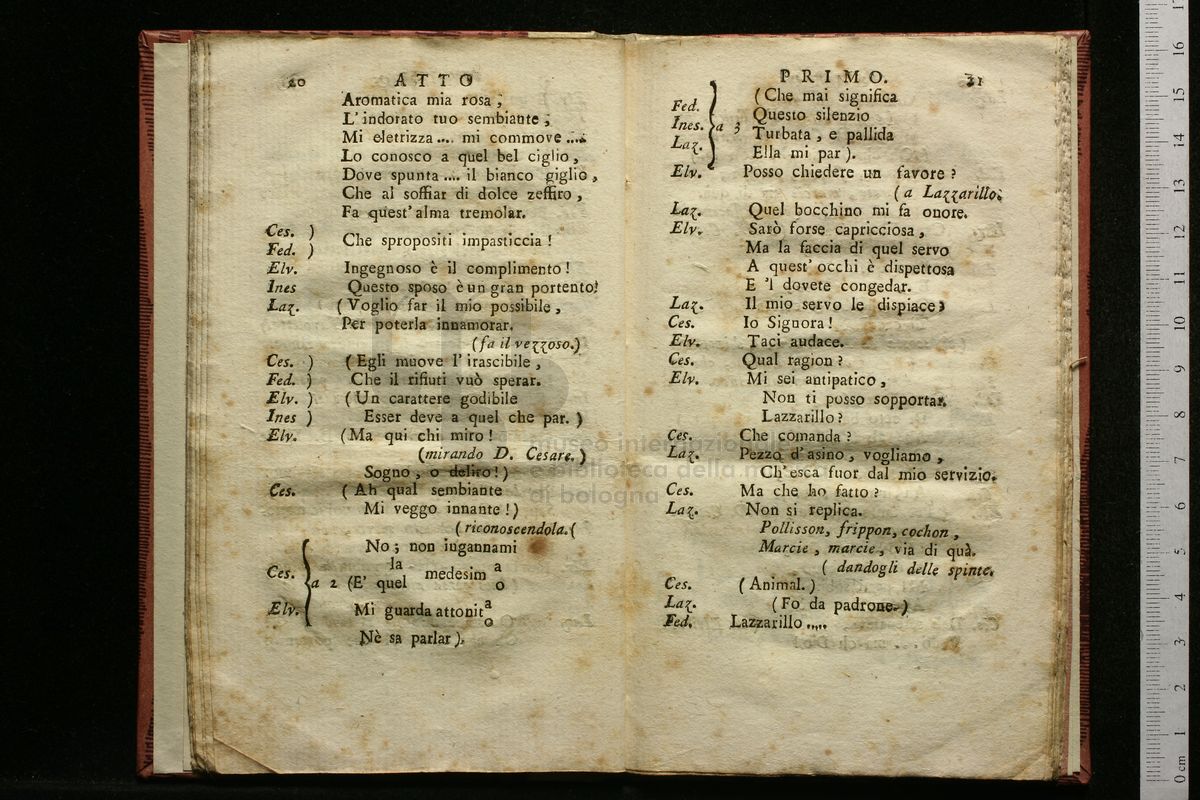 20 ATTO
Aromatica mia rosa ;
L' indorato tuo sembiante ;
Mi eletrizza .... mi commove ....
Lo conosco a quel bel ciglio ,
Dove spunta .... il bianco giglio ,
Che al soffiar di dolce zeffiro ,
Fa quest' alma tremolar.
Ces. )
Che spropositi impasticcia !
Fed. )
Elv. Ingegnoso è il complimento !
Ines Questo sposo è un gran portento!
Laz. ( Voglio far il mio possibile ,
Per poterla innamorar.
(fa il vezzoso.)
Ces. ) ( Egli muove l' irascibile ,
Fed. ) Che il rifiuti vuò sperar.
Elv. ) ( Un carattere godibile
Ines ) Esser deve a quel che par. )
Elv. ( Ma qui chi miro !
(mirando D. Cesare. )
Sogno , o deliro ! )
Ces. ( Ah qual sembiante
Mi veggo innante ! )
( riconoscendola. (
No ; non iugannami
Ces. a 2 (E' quel la/o medesim a/o
Elv. Mi guarda attonit a/o
Nè sa parlar ).
PRIMO. 21
Fed. ( Che mai significa
Ines. a 3 Questo silenzio
Laz. Turbata , e pallida
Ella mi par ).
Elv. Posso chiedere un favore ?
( a Lazzarillo.
Laz. Quel bocchino mi fa onore.
Elv. Sarò forse capricciosa ,
Ma la faccia di quel servo
A quest' occhi è dispettosa
E 'l dovete congedar.
Laz. Il mio servo le dispiace?
Ces. Io Signora !
Elv. Taci audace.
Ces. Qual ragion ?
Elv. Mi sei antipatico ,
Non ti posso sopportar.
Lazzarillo ?
Ces. Che comanda ?
Laz. Pezzo d' asino , vogliamo ,
Ch' esca fuor dal mio servizio.
Ces. Ma che ho fatto ?
Laz. Non si replica.
Pollisson, frippon, cochon ,
Marcie , marcie , via di quà.
( dandogli delle spinte.
Ces. ( Animal. )
Laz. ( Fo da padrone. )
Fed. Lazzarillo .....
Museo internazionale
e biblioteca della musica
di bologna
0 cm 1 2 3 4 5 6 7 8 9 10 11 12 13 14 15 16 17